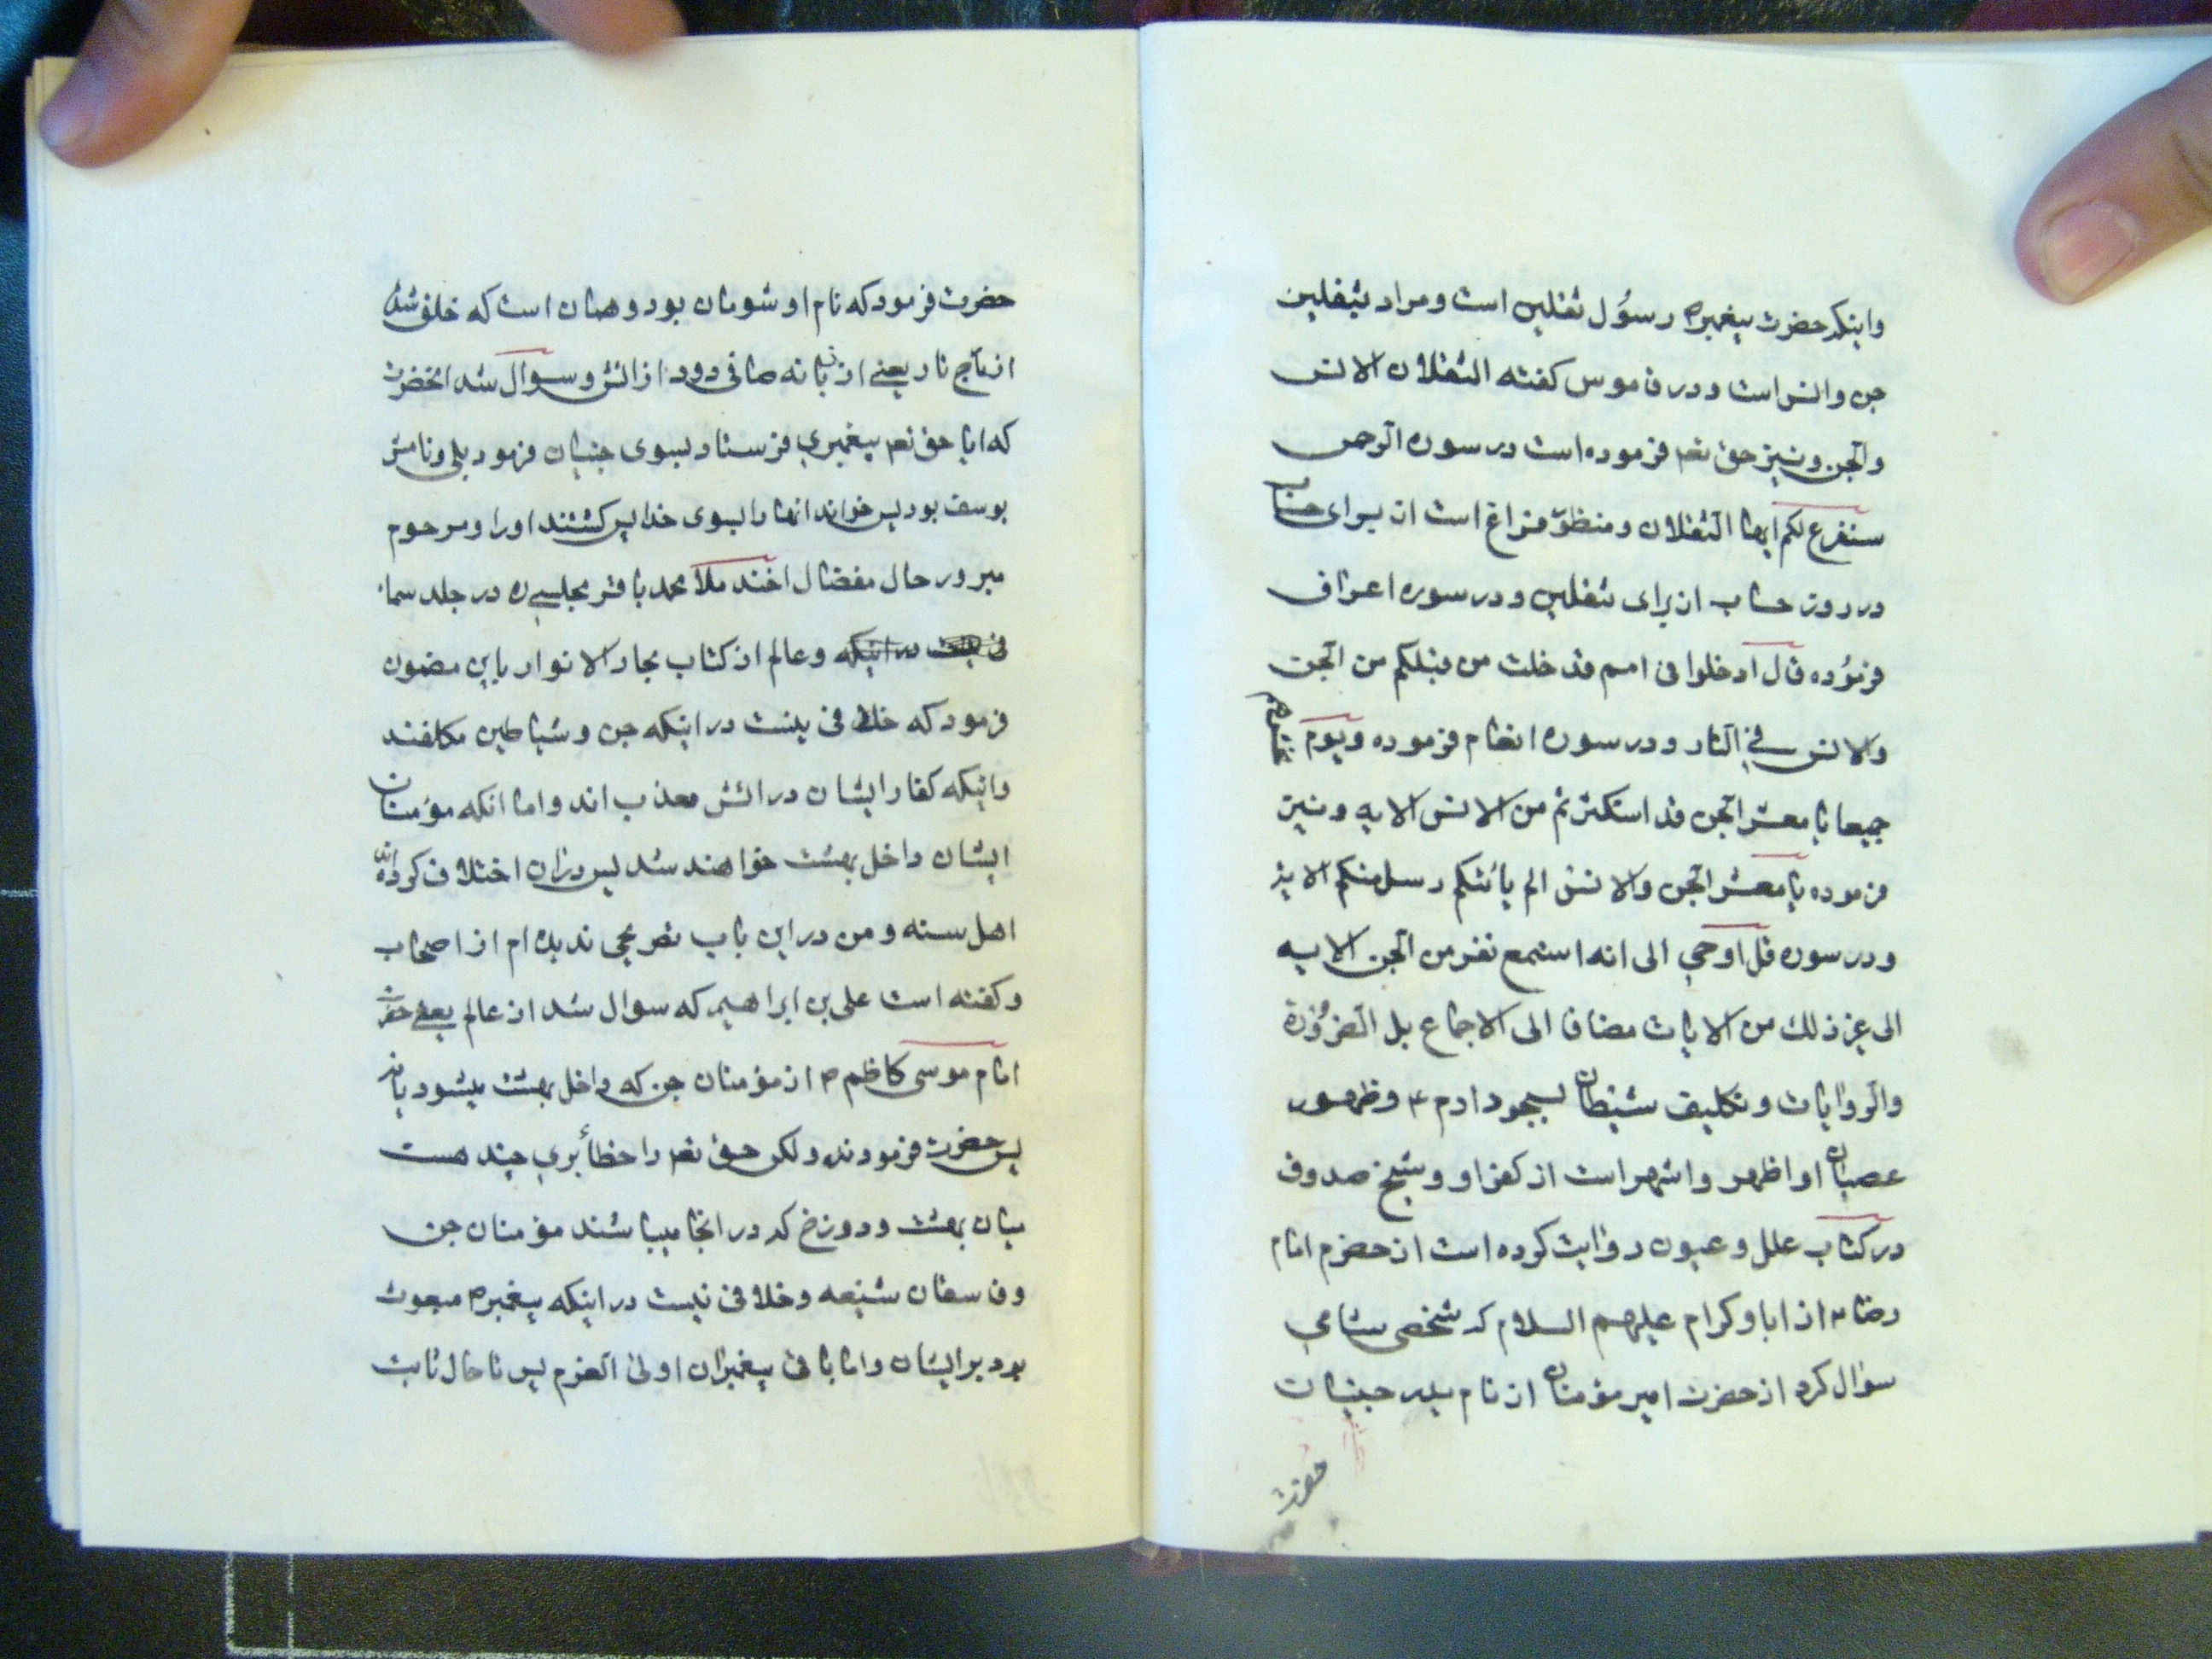 واینکه حضرت پیغمبر ص رسُول ثقلین است و مراد بثقلین
جن وانس است و در قاموس کفته الثقلان الانس
والجن و نیز حق تعم فرموده است در سوره الرحمن
سنفرغ لکم ایها الثقلان و منظور فراغ است از برای حساب
در روز حساب از برای ثقلین و در سوره اعراف
فرمُوده قال ادخلوا فی امم قد خلت من قبلکم من الجن
والانس فی النار و در سوره انعام فرموده ویوم نحشرهم
جمیعا یا معشر الجن قد استکثرتم من الانس الایه و نیز
فرموده یا معشر الجن والانس الم یاتکم رسل منکم الایه
و در سوره قل اوحی الی انه استمع نفر من الجن الایه
الی غیر ذلك من الایات مضافا الی الاجماع بل الضرُورة
والروایات و تکلیف شیطان بسجود ادم ع و ظهور
عصیان او اظهر و اشهر است از کفر او و شیخ صدوق
در کتاب علل و عیون روایت کرده است از حضرت امام
رضا ع از اباء کرام علیهم السلام که شخصی شامی
سؤال کرد از حضرت امیر مؤمنان از نام پدر جنیان
حضرت
حضرت فرمود که نام او شومان بود و همان است که خلق شد
از مارج نار یعنی از زبانه صافی دود از اتش و سوال شد انحضرت
که ایا حق تعم پیغمبری فرستاد بسوی جنیان فرمود بلی و نامش
یوسف بود پس خواند انها را بسوی خدا پس کشتند او را و مرحوم
مبرور حال مفضال اخند ملا محمد باقر مجلسی ره در جلد سماء
و عالم از کتاب بحار الانوار باین مضمون
فرمود که خلافی نیست در اینکه جن و شیاطین مکلفند
واینکه کفار ایشان در اتش معذب اند و اما انکه مؤمنان
ایشان داخل بهشت خواهند شد پس در ان اختلاف کرده اند
اهل سنه و من در این باب تصریحی ندیده ام از اصحاب
و کفته است علی بن ابراهیم که سوال شد از عالم یعنی حضرت
امام موسی کاظم ع از مؤمنان جن که داخل بهشت میشود یا نه
پس حضرت فرمودند ولکن حق تعم را حظائری چند هست
میان بهشت و دوزخ که در انجا میباشند مؤمنان جن
و فاسقان شیعه و خلافی نیست در اینکه پیغمبر ص مبعوث
بود بر ایشان و اما باقی پیغمبران اولی العزم پس تا حال ثابت